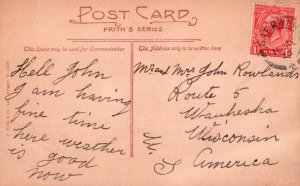 POST CARD
FRITH'S SERIES
This Space may be used for Communication
The Address only to be written here
Hell John
I am having
fine time
here weather
is good
now
Mr and Mrs John Rowlands
Route 5
Waukesha
Wisconsin
U.S
America